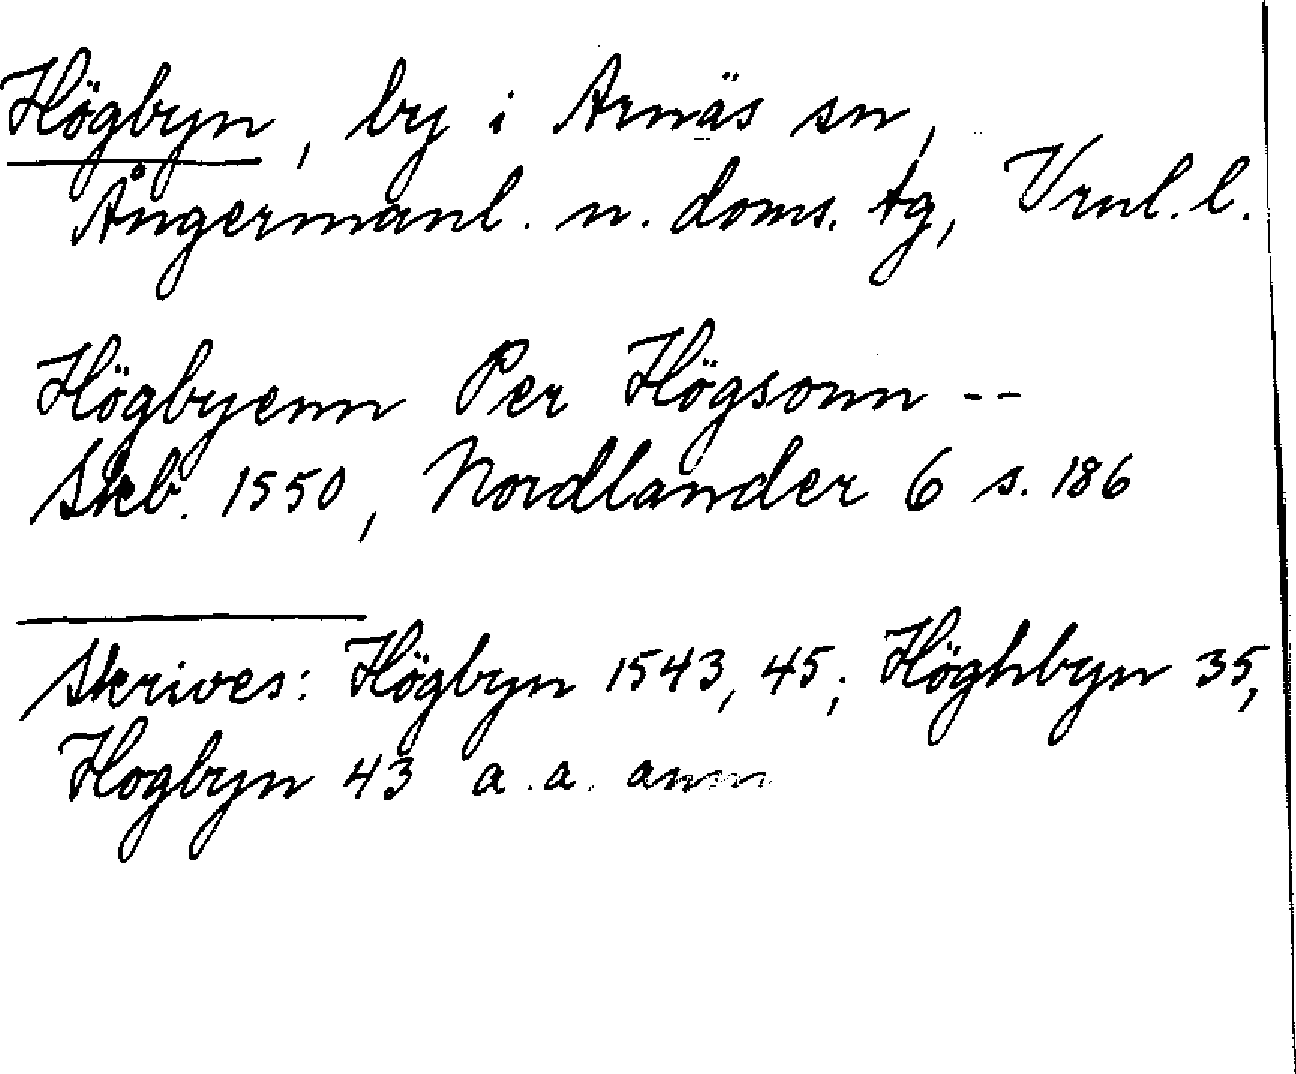 Högbyn, by i Arnäs sn,
Ångermanl. n. doms. tg, Vrnl. l.
Högbyenn Per Högsonn --
Skb. 1550, Nordlander 6 s. 186
Skrives: Högbyn 1543, 45; Höghbyn 35,
Hogbyn 43 a. a. ann